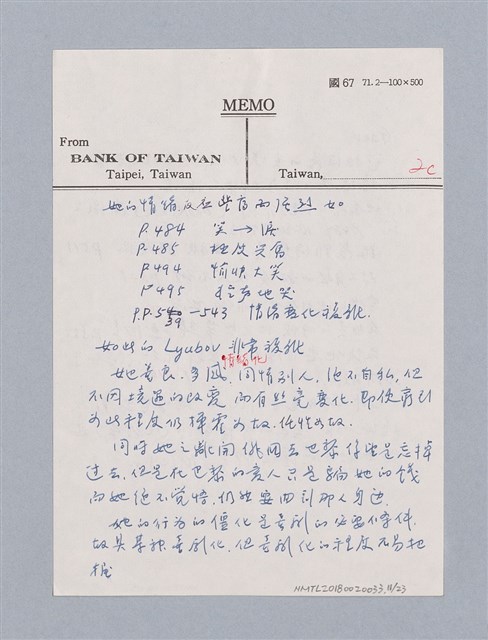 國67 71.2—100×500
MEMO
From
BANK OF TAIWAN
Taipei, Taiwan
Taiwan,
2c
她的情緒反應常有而強烈 如
P.484 笑→淚
P.485 極度興奮
P494 愉快大笑
P495 地哭
P.P.540 39 —543 情緒變化複雜.
如此的 Lyubov 非常複雜
情緒化
她善良、同情別人、不自私,但
不因境遇的改變 而有丝毫變化. 即使
為此程度仍揮霍如故.如故.
同時她之離開俄國去巴黎 是忘掉
過去,但是在巴黎的愛人只是騙她的錢
而她絕不覺悟,仍然要回到那人身邊.
她的行為的僵化是喜劇的必要條件.
故具喜劇化.但喜劇化的程度不易把
握
HMTL20180020033,11/23